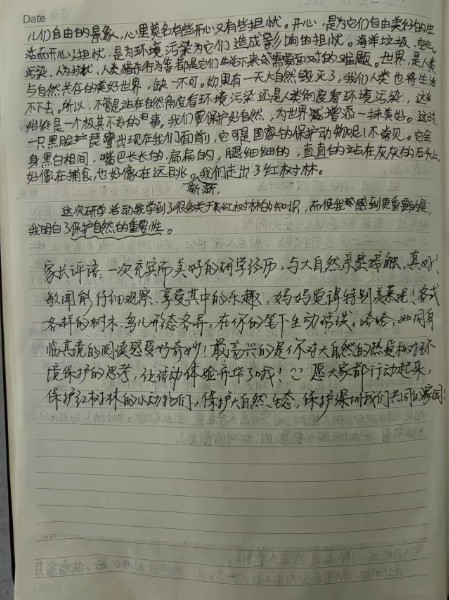 Date
儿们自由的景象,心里莫名有些开心又有些担忧。开心,是为它们自由美好的生
活而开心;担忧,是为环境污染为它们造成影响的担忧。海洋垃圾、空气
污染、人为捕杀等都是它们生活下来需要面对的难题。世界,是人类
与自然共存的美好世界,缺一不可。如果有一天大自然毁灭了,我们人类也将生活
不下去。所以,不管站在自然角度看环境污染还是人类角度看环境污染,这
始终是一个极其不好的事。我们要保护好自然,为世界增添一抹美好。这时,
一只黑脸琵鹭出现在我们面前,它可是国家的保护动物呢!不常见。它全
身黑白相间,嘴巴长长的、扁扁的,腿细细的,直直的站在灰灰的石头上,
好像在捕食,也好像在远眺。我们走出了红树林。
渐渐
这次研学活动我学到了很多关于红树林的知识,而使我感到更重要的是,
我明白了保护自然的重要性。
家长评语:一次充实而美好的研学经历,与大自然亲密接触,真好!
敏闻能仔细观察,享受其中的乐趣,妈妈觉得特别美美哒!各式
各样的树木、鸟儿形态各异,在你的笔下生动惊谈,哈哈,如同身
临其境的阅读感受妙奇妙!最高兴的是你对大自然的热爱和对环
境保护的思考,使活动体验升华了哦!愿大家都行动起来,
保护红树林的小动物们,保护大自然生态,保护深圳我们共同的家园!